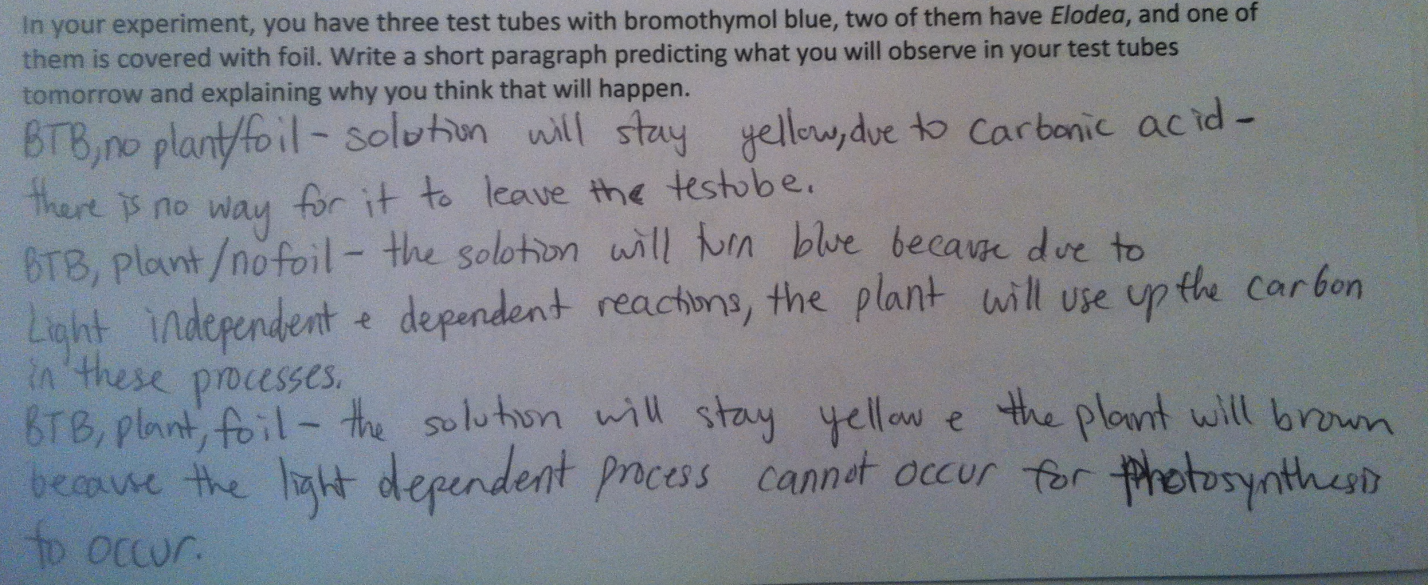 In your experiment, you have three test tubes with bromothymol blue, two of them have Elodea, and one of
them is covered with foil. Write a short paragraph predicting what you will observe in your test tubes
tomorrow and explaining why you think that will happen.
BTB, no plant/foil - solution will stay yellow, due to carbonic acid -
there is no way for it to leave the testobe.
BTB, plant/no foil - the solotion will turn blue because due to
Light independent e dependent reactions, the plant will use up the carbon
in these processes.
BTB, plant, foil - the solution will stay yellow e the plant will brown
because the light dependent process cannot occur for Photosynthesis
to occur.